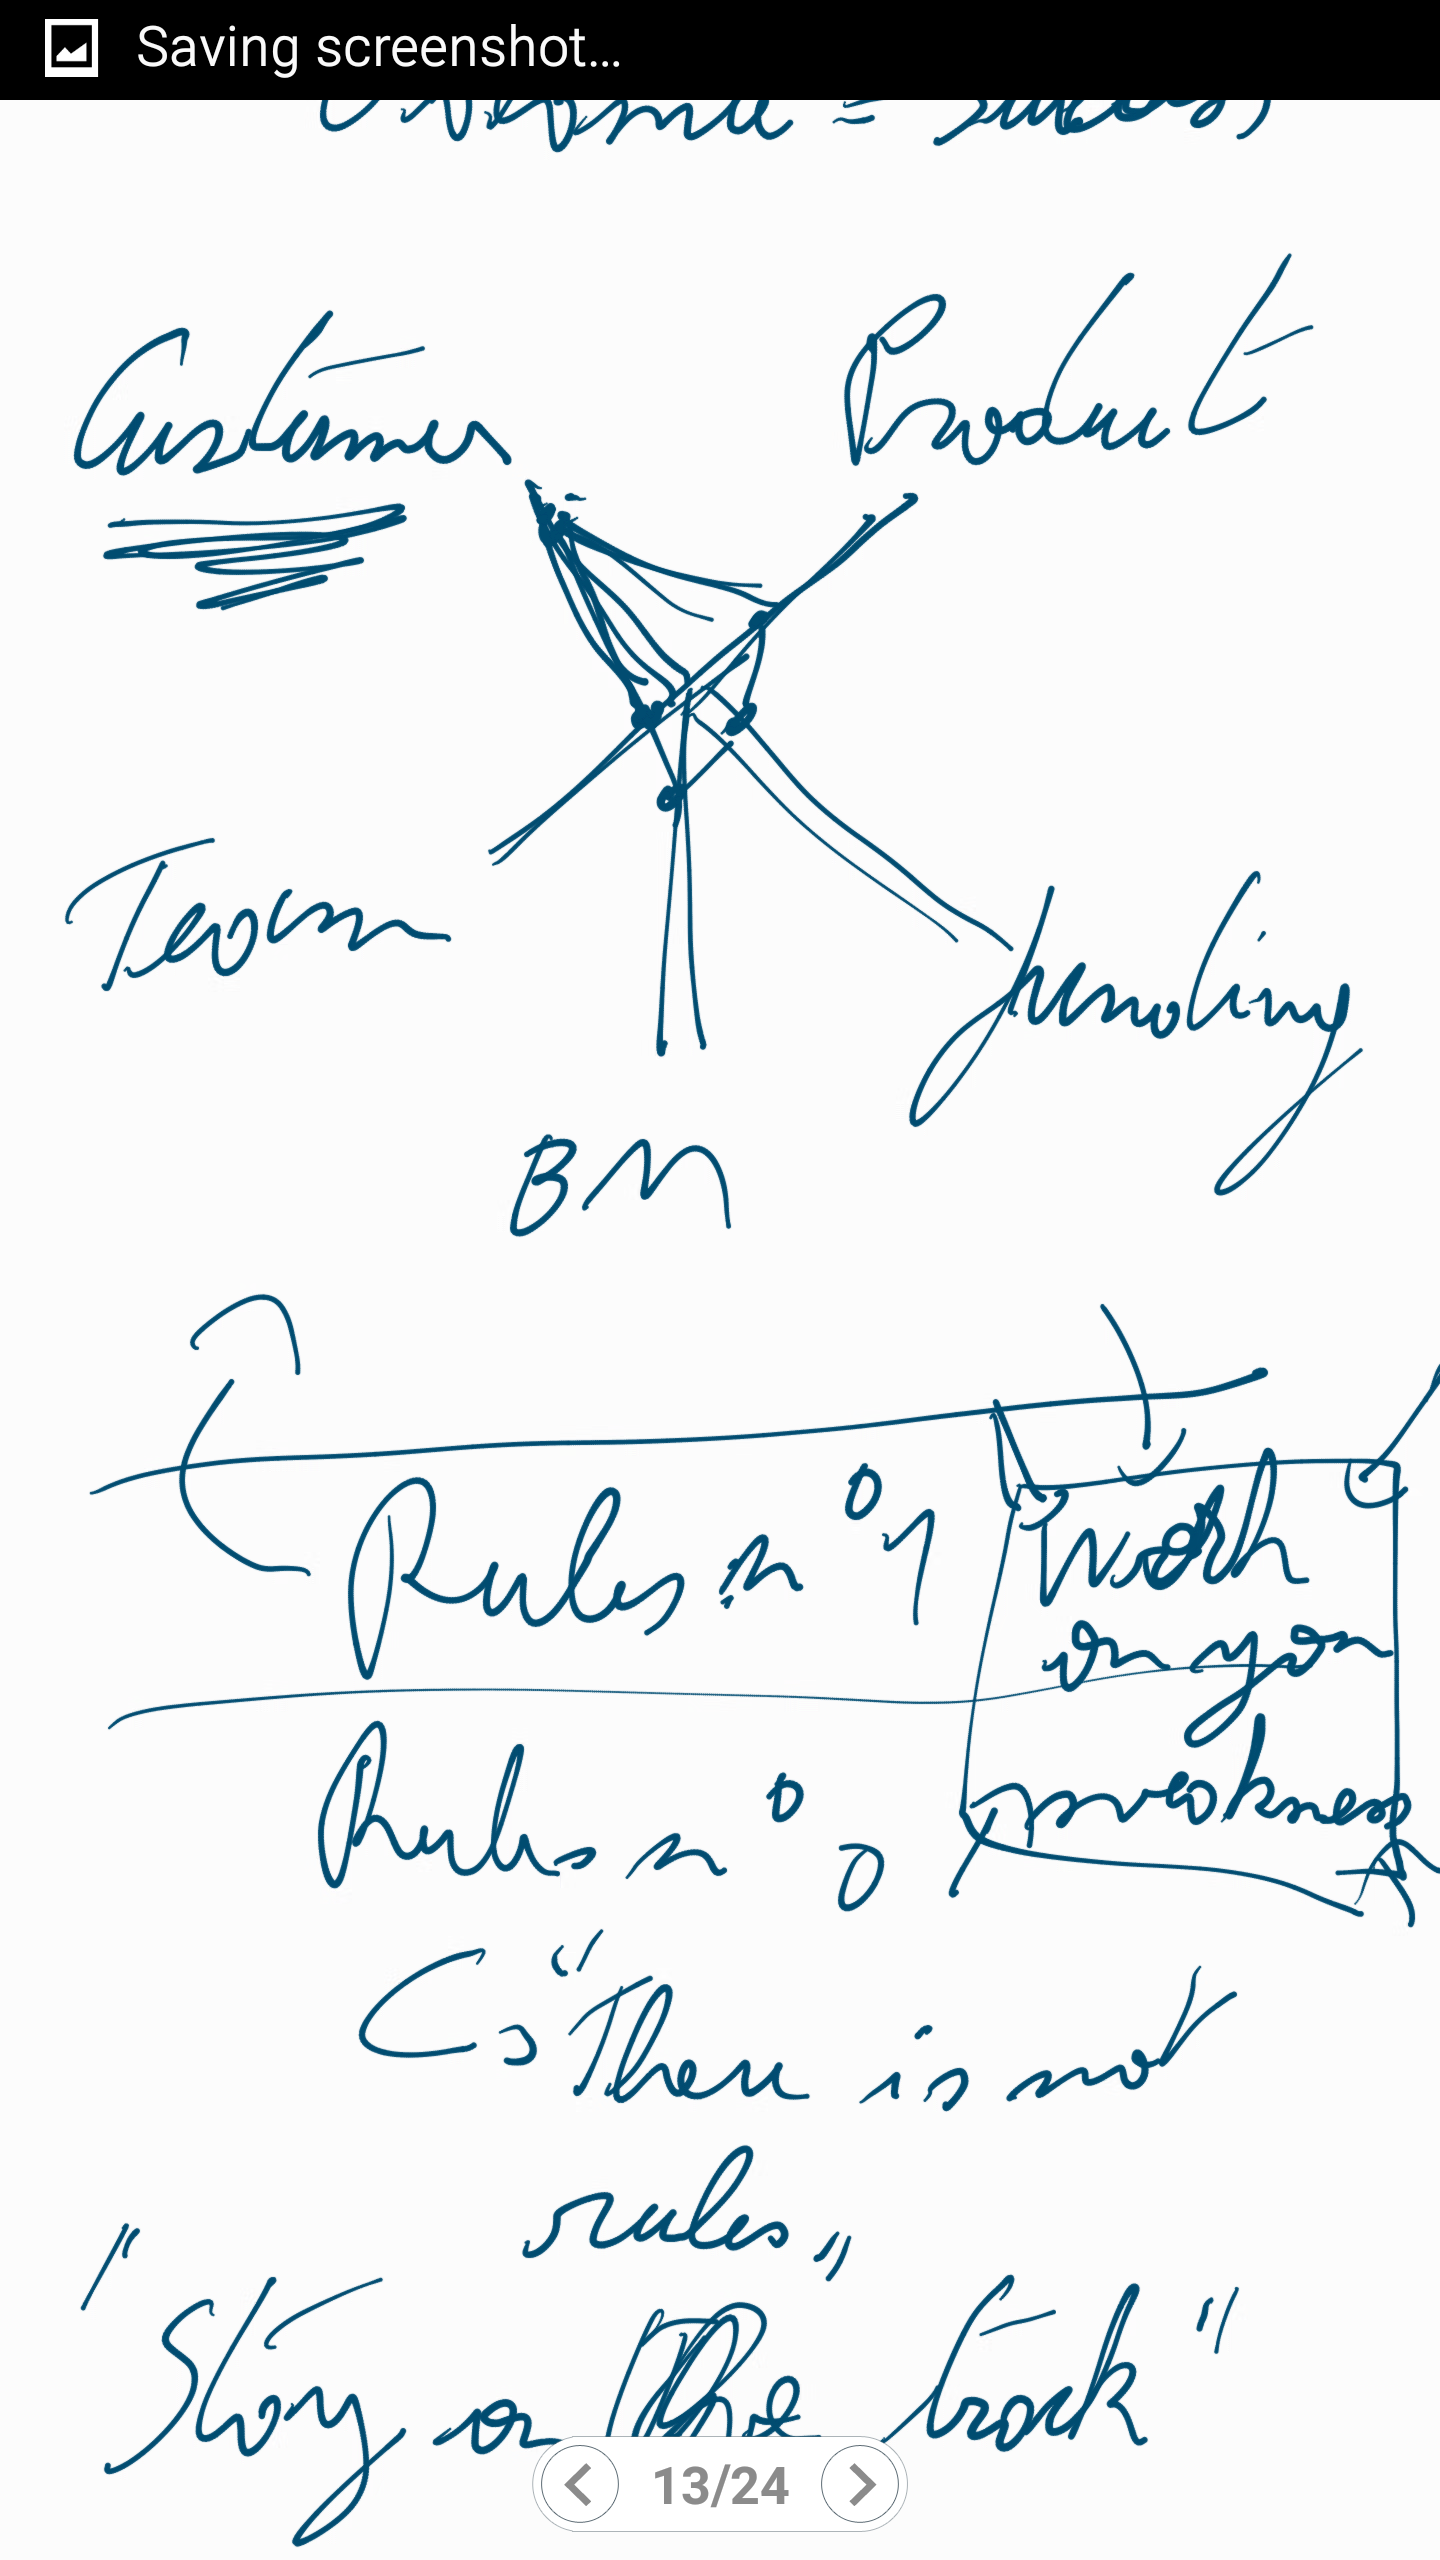 Saving screenshot...
= success
Customer
Product
Team
funding
BM
Rules n° 1
Work
on you
weakness
Rules n° 0
"There is not
rules"
"Stay on the track"
13/24